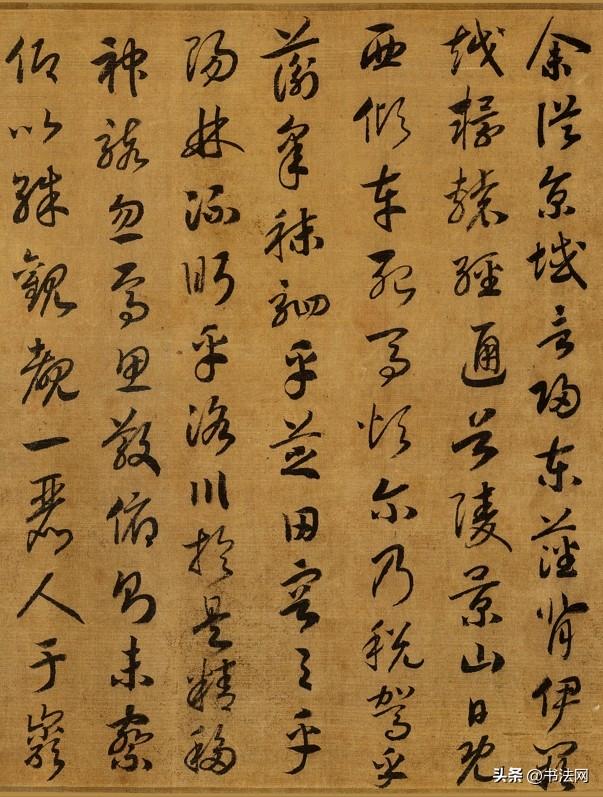 余從京域言歸東藩背伊闕
越轘轅經通谷陵景山日既
西傾車殆馬煩尔乃稅駕乎
蘅皋秣駟乎芝田容与乎
陽林流眄乎洛川於是精移
神駭忽焉思散俯則未察
仰以殊觀覩一麗人于巖
头条 @书法网